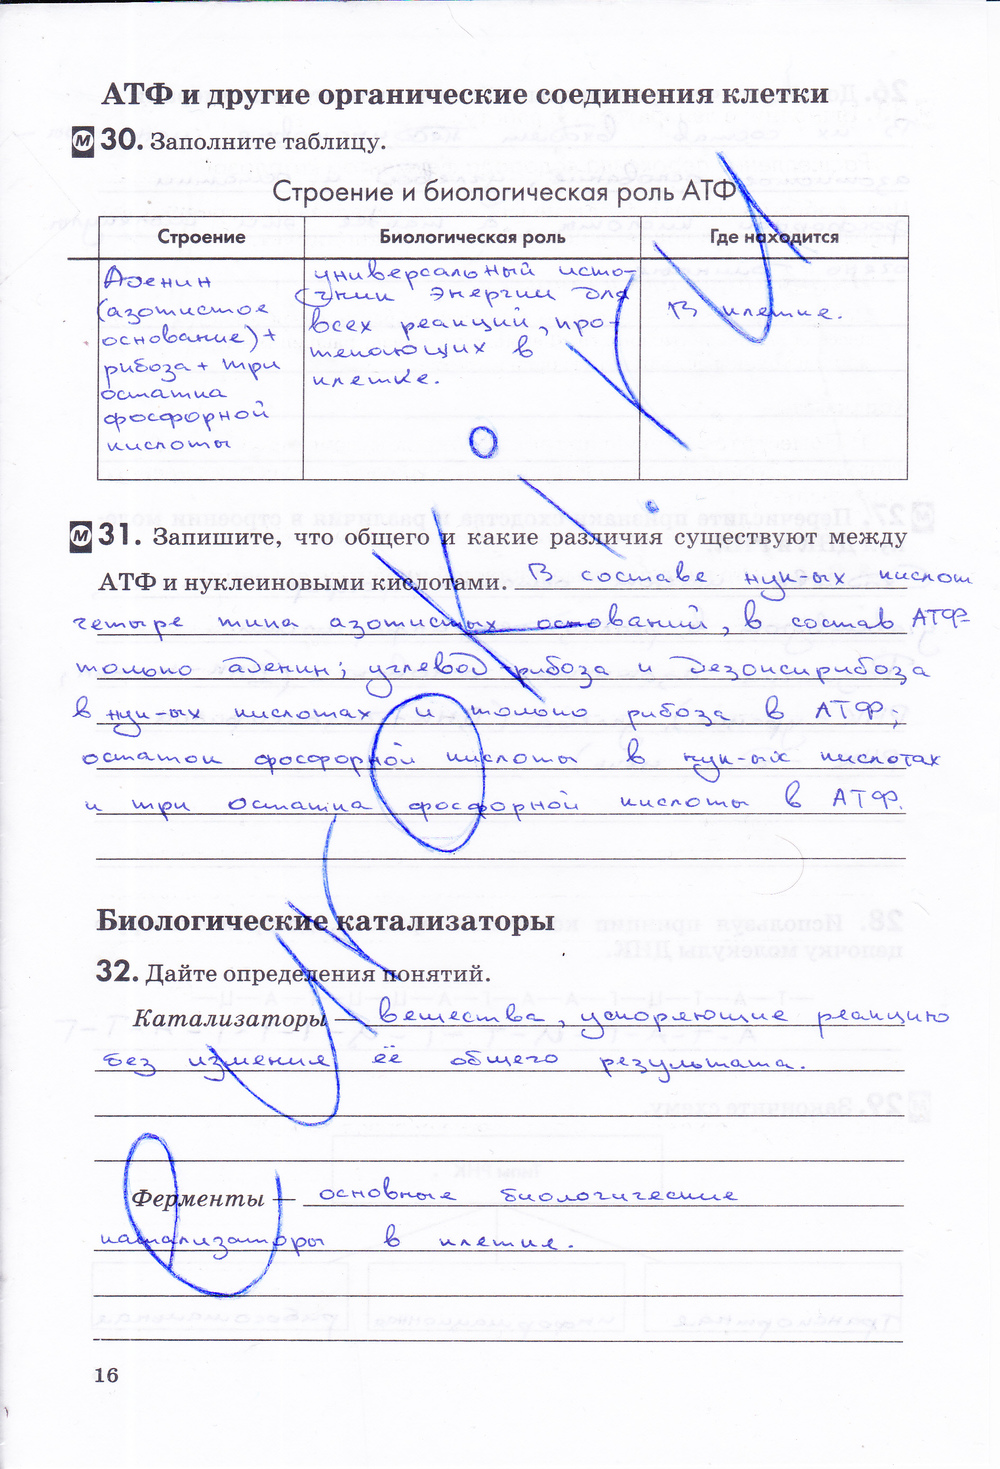 АТФ и другие органические соединения клетки
М 30. Заполните таблицу.
Строение и биологическая роль АТФ
Строение
Биологическая роль
Где находится
Аденин
(азотистое
основание) +
рибоза + три
остатка
фосфорной
кислоты
универсальный исто-
чник энергии для
всех реакций, про-
текающих в
клетке.
В клетке.
М 31. Запишите, что общего и какие различия существуют между
АТФ и нуклеиновыми кислотами. В составе нук-ых кислот
четыре типа азотистых оснований, в состав АТФ-
только аденин; углевод рибоза и дезоксирибоза
в нук-ых кислотах и только рибоза в АТФ;
остаток фосфорной кислоты в нук-ых кислотах
и три остатка фосфорной кислоты в АТФ.
Биологические катализаторы
32. Дайте определения понятий.
Катализаторы — вещества, ускоряющие реакцию
без измения её общего результата.
Ферменты — основные биологические
катализаторы в клетке.
16